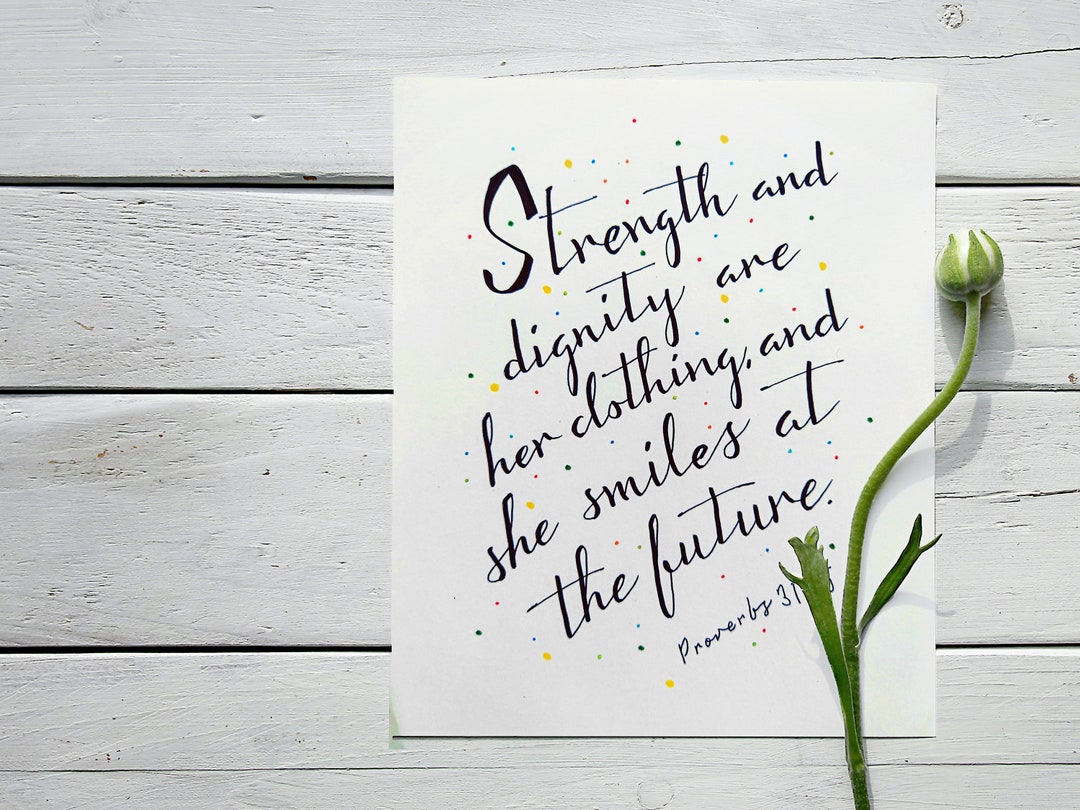 Strength and
dignity are
her clothing, and
she smiles at
the future.
Proverbs